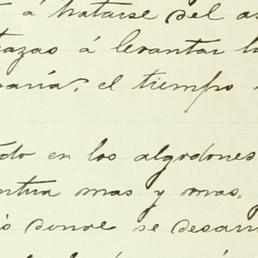 á tratarse del as
azas á levantar la
aria, el tiempo
do en los algodones
ntua mas y mas,
donde se desarr